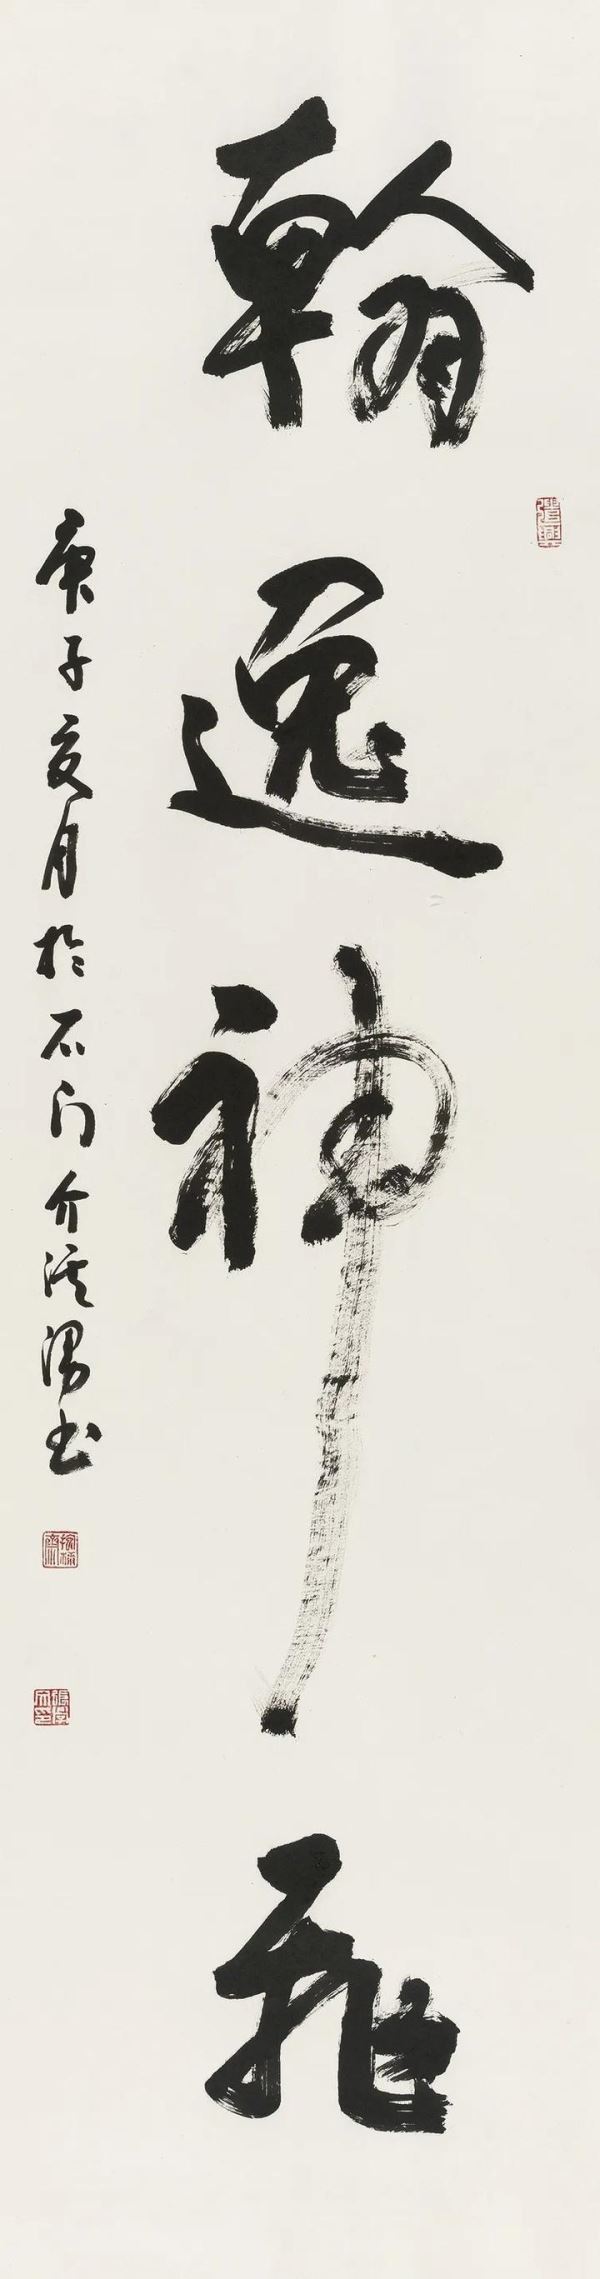 翰逸神飛
庚子亥月於石门介溪湯书